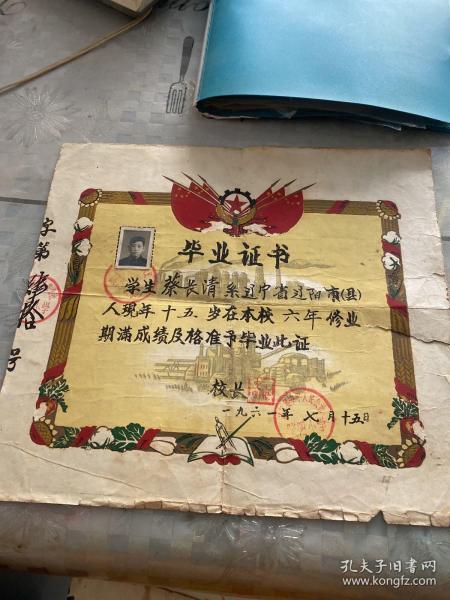 毕业证书
学生蔡长清系辽宁省辽阳市(县)
人现年十五岁在本校六年修业
期满成绩及格准予毕业此证
校长
一九六一年七月十五日
字第
号
孔夫子旧书网
www.kongfz.com